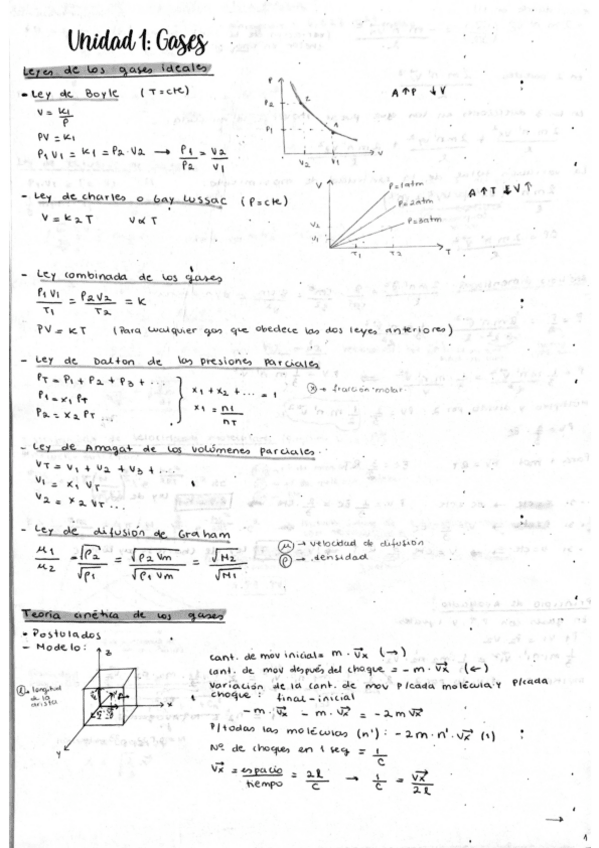 Unidad 1: Gases
Leyes de los gases ideales
- Ley de Boyle (T=cte)
V = K1/P
PV = K1
P1 V1 = K1 = P2 · V2 → P1/P2 = V2/V1
P
P2
P1
2
1
V2 V1 V
A ↑P ↓V
- Ley de charles o Gay Lussac (P=cte)
V = K2 T V∝T
V
V2
V1
T1 T2 T
P=1atm
P=2atm
P=3atm
A ↑T V↑
- Ley combinada de los gases
P1 V1/T1 = P2 V2/T2 = K
PV = KT (Para cualquier gas que obedece las dos leyes anteriores)
- Ley de Dalton de las presiones parciales
PT = P1 + P2 + P3 + ...
P1 = x1 PT
P2 = x2 PT ...
x1 + x2 + ... = 1
x1 = n1/nT
x → fracción molar
- Ley de Amagat de los volúmenes parciales
VT = V1 + V2 + V3 + ...
V1 = x1 VT
V2 = x2 VT ...
- Ley de difusión de Graham
μ1/μ2 = √ρ2/√ρ1 = √ρ2 Vm/√ρ1 Vm = √M2/√M1
μ → velocidad de difusión
ρ → densidad
Teoría cinética de los gases
- Postulados
- Modelo:
z
x
y
ℓ → longitud de la arista
cant. de mov inicial = m · Vx (→)
cant. de mov después del choque = - m · Vx (←)
Variación de la cant. de mov P/cada molécula y P/cada
choque: final - inicial
- m · Vx - m · Vx = -2 m Vx
P/todas las moléculas (n'): -2m · n' · Vx (1)
Nº de choques en 1 seg = 1/C
Vx = espacio/tiempo = 2ℓ/C → 1/C = Vx/2ℓ
→
1